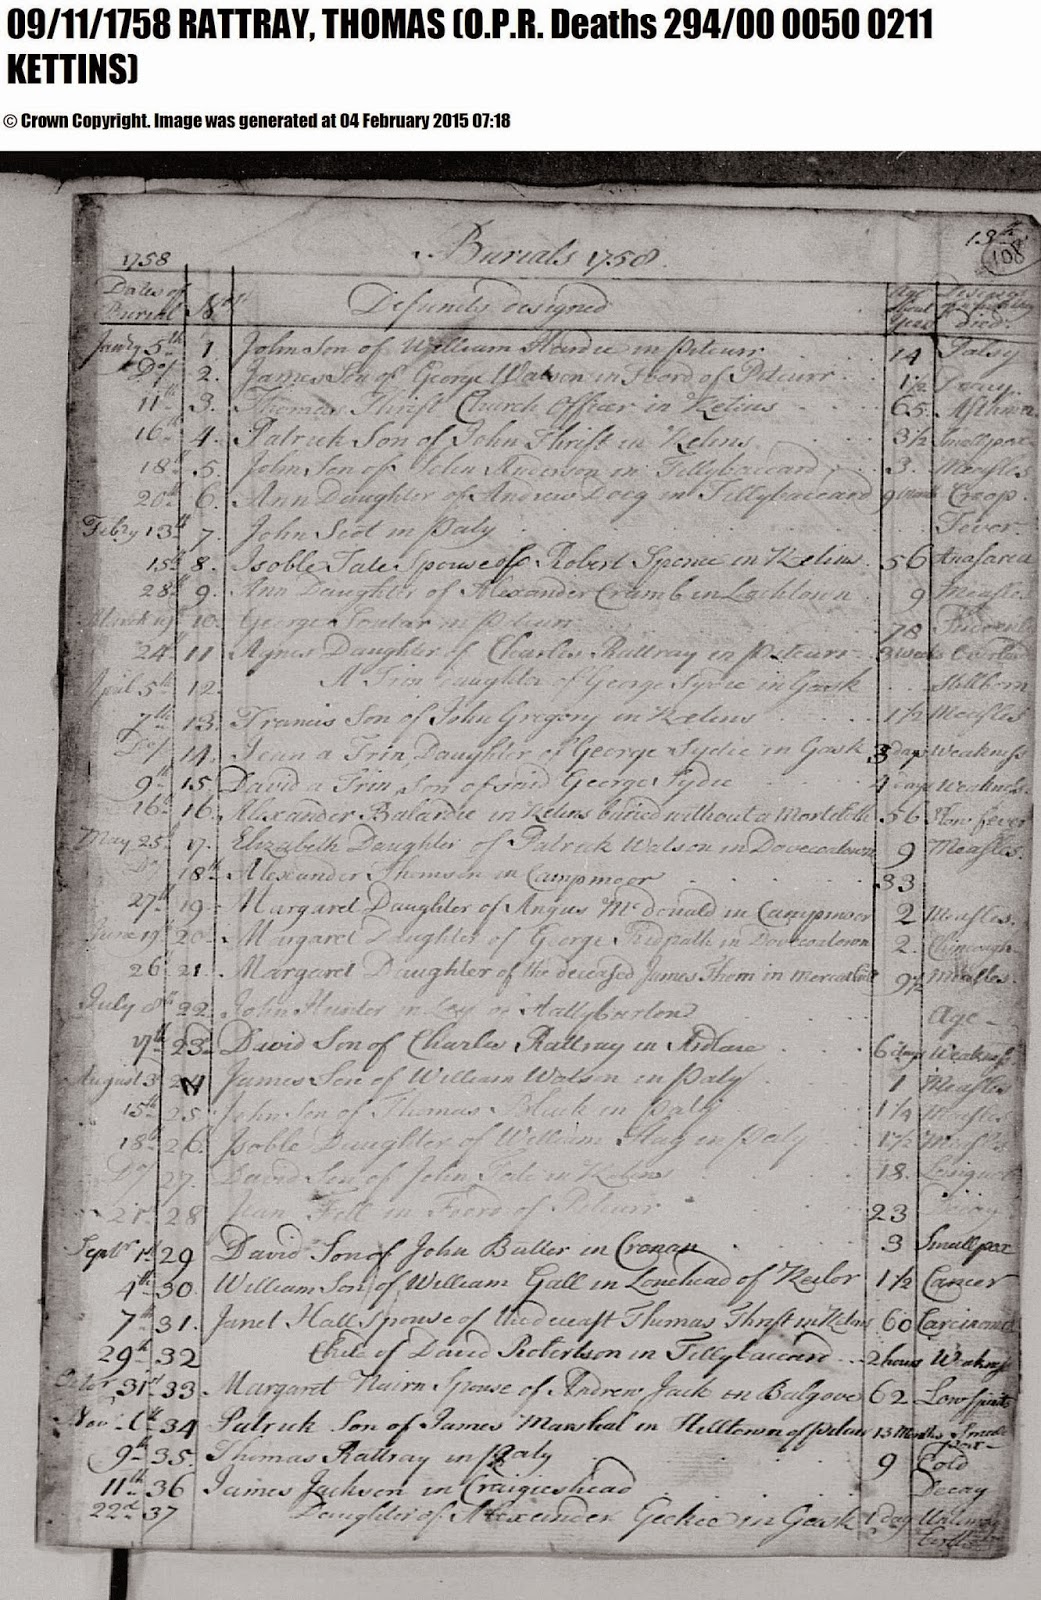 09/11/1758 RATTRAY, THOMAS (O.P.R. Deaths 294/00 0050 0211
KETTINS)
© Crown Copyright. Image was generated at 04 February 2015 07:18
13th
108
1758 Burials 1758.
Dates of Burial Nos Defuncts designed Age about Years Diseases of which they died.
Janry 5th 1 John Son of William Hardie in Piteurr 14 Palsy
Do/ 2. James Son of George Watson in Foord of Piteurr 1 1/2
11th 3. Thomas Thrift Church Officer in Ketins 65. Asthma
16th 4. Patrick Son of John Thrift in Ketins 3 1/2 Smallpox
18th 5. John Son of John Anderson in Tillybaiccard 3. Measles
20th 6. Ann Daughter of Andrew Doeg in Tillybaiccard 9 Croop
Febry 13th 7. John Scot in Paly Fever
15th 8. Isoble Tale Spouse of Robert Spence in Ketins 56 Anasarca
28th 9. Ann Daughter of Alexander Crumb in Lochtown 9 Measles
March 19 10. George Soutar in Piteurr 78
24th 11 Agnes Daughter of Charles Rattray in Piteurr 3 weeks
April 5th 12. A Trin Daughter of George Sydie in Gask Stillborn
7th 13. Francis Son of John Gregory in Ketins 1 1/2 Measles
Do/ 14. Jean a Trin Daughter of George Sydie in Gask 3 days Weakness
9th 15. David a Trin Son of said George Sydie 4 days Weakness
16th 16. Alexander Balardie in Ketins buried without a Mortcloth 56 Slow fever
May 25th 17. Elizabeth Daughter of Patrick Watson in Dovecoatown 9 Measles.
Do/ 18th Alexander Thomson in Campmoor 33
27th 19 Margaret Daughter of Angus McDonald in Campmoor 2 Measles.
June 19th 20 Margaret Daughter of George Ridpath in Dovecoatown 2. Chincough
26 21. Margaret Daughter of the deceased James Thom in 9 1/2 Measles.
July 8th 22 John Hunter in Ley of Hallyburton Age
17th 23 David Son of Charles Rattray in Ridlaie 6 days Weakness
August 3d 24 James Son of William Watson in Paly 1 Measles
15th 25 John Son of Thomas Black in Paly 1 1/4 Measles
18th 26. Isoble Daughter of William Hay in Paly 1 1/2 Measles
Do/ 27. David Son of John Tale in Ketins 18.
21st 28 Jean Fell in Foord of Piteurr 23 Decay
Septr 1st 29 David Son of John Butter in Cronan 3 Smallpox
4th 30. William Son of William Gall in Lonehead of Keilor 1 1/2 Cancer
7th 31. Janet Hall Spouse of the deceast Thomas Thrift in Ketins 60 Carcinoma
29th 32 Child of David Robertson in Tillybaiccard 2 hours Weakness
Octor 31st 33 Margaret Nairn Spouse of Andrew Jack in Balgove 62 Low Spirits
Novr 6th 34 Patrick Son of James Marshal in Hilltown of Piteurr 13 Months Small Pox
9th 35. Thomas Rattray in Paly 9 Cold
11th 36 James Jackson in Craigieshead Decay
22d 37 Daughter of Alexander Geekie in Gask 1 day